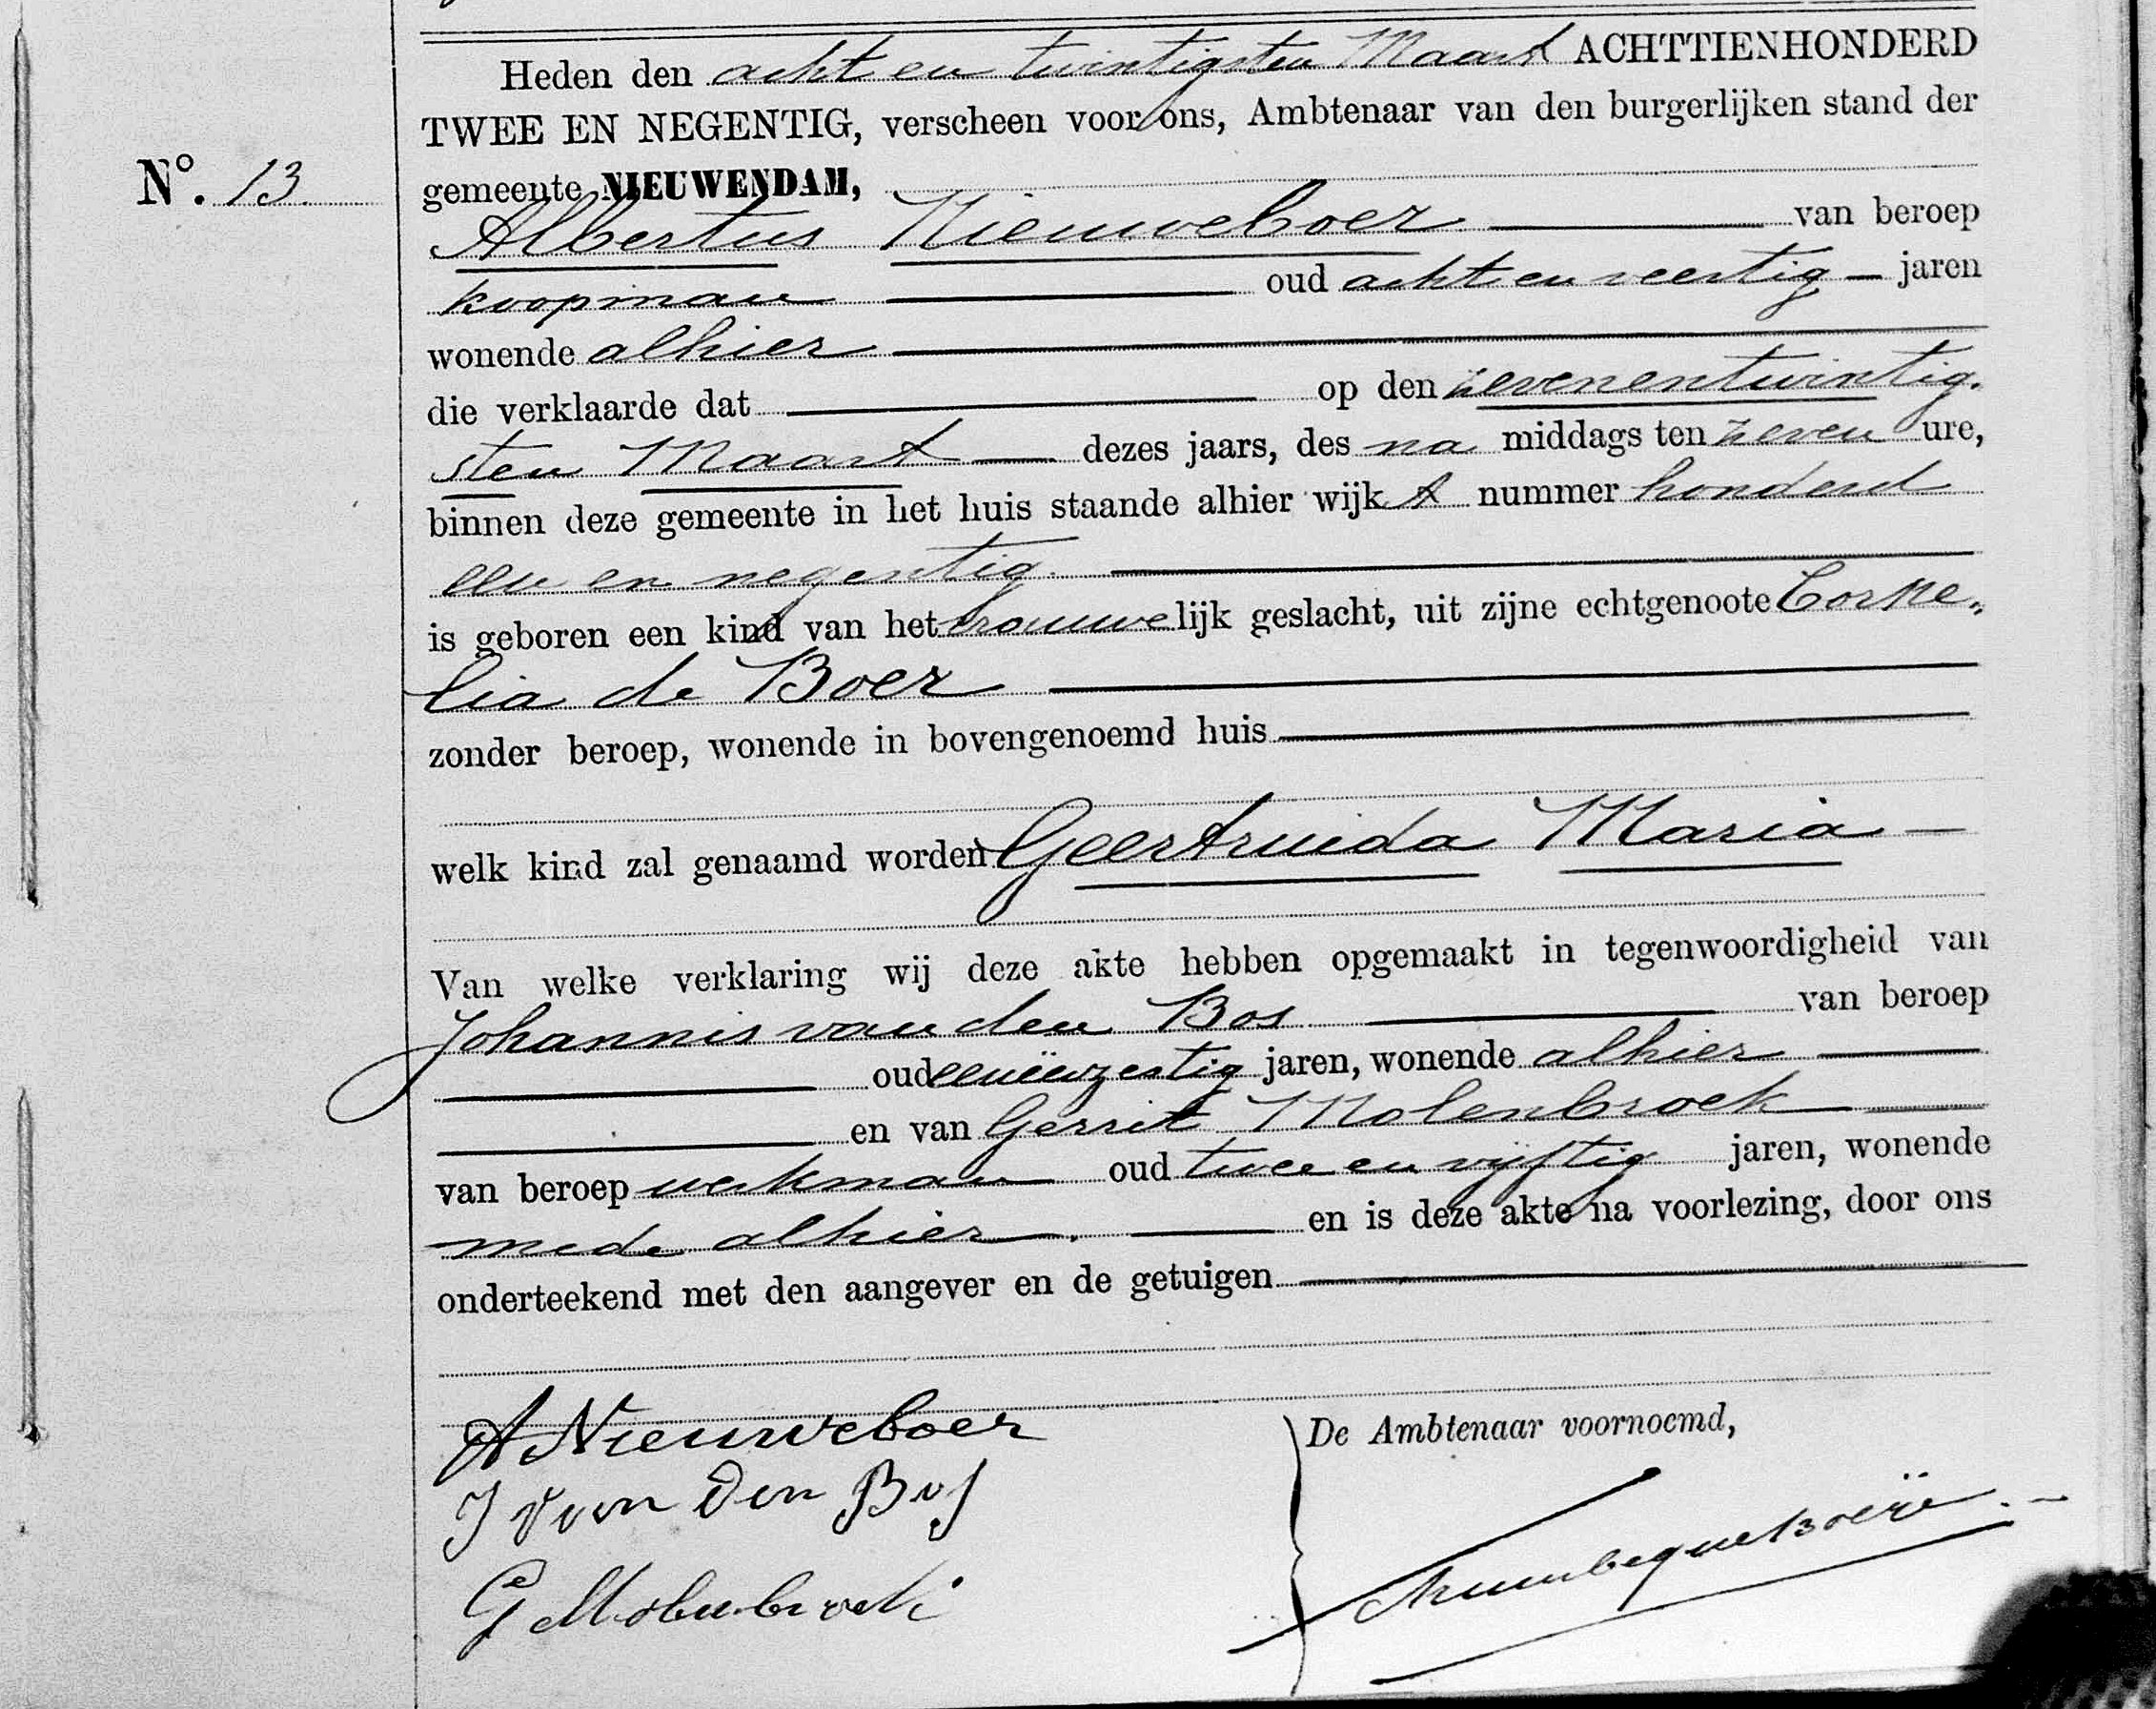 Heden den acht en twintigsten Maart ACHTTIENHONDERD
TWEE EN NEGENTIG, verscheen voor ons, Ambtenaar van den burgerlijken stand der
No. 13.
gemeente NIEUWENDAM,
Albertus Nieuweboer van beroep
koopman oud acht en veertig jaren
wonende alhier
die verklaarde dat op den zevenentwintig-
sten Maart dezes jaars, des na middags ten zeven ure,
binnen deze gemeente in het huis staande alhier wijk A nummer honderd
een en negentig.
is geboren een kind van het vrouwelijk geslacht, uit zijne echtgenoote Corne„
lia de Boer
zonder beroep, wonende in bovengenoemd huis
welk kind zal genaamd worden Geertruida Maria
Van welke verklaring wij deze akte hebben opgemaakt in tegenwoordigheid van
Johannis van den Bos van beroep
oud eenënzestig jaren, wonende alhier
en van Gerrit Molenbroek
van beroep werkman oud twee en vijftig jaren, wonende
mede alhier. en is deze akte na voorlezing, door ons
onderteekend met den aangever en de getuigen
A Nieuweboer
De Ambtenaar voornoemd,
J van den Bos
G Molenbroek